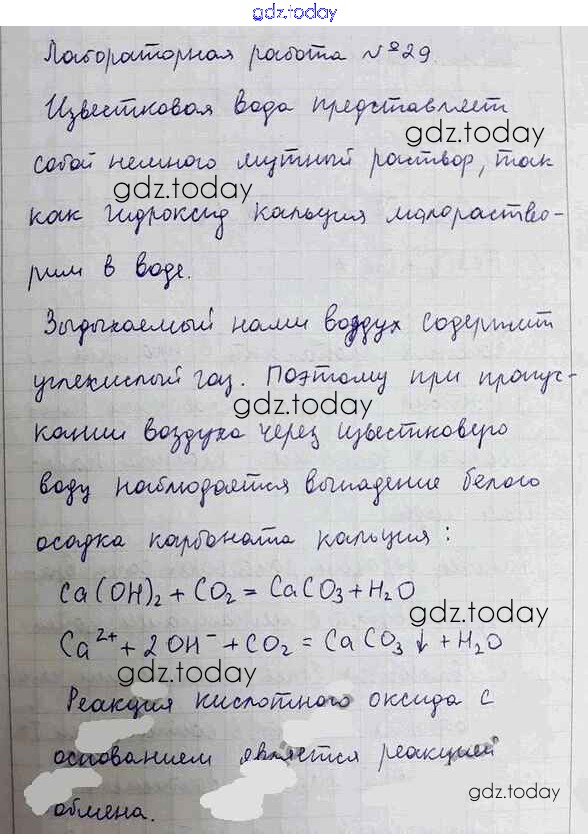 gdz.today
Лабораторная работа №29.
Известковая вода представляет
gdz.today
собой немного мутный раствор, так
gdz.today
как гидроксид кальция малораство-
рим в воде.
Выдыхаемый нами воздух содержит
углекислый газ. Поэтому при пропус-
gdz.today
кании воздуха через известковую
воду наблюдается выпадение белого
осадка карбоната кальция:
Ca(OH)₂ + CO₂ = CaCO₃ + H₂O
gdz.today
Ca²⁺ + 2OH⁻ + CO₂ = CaCO₃↓ + H₂O
gdz.today
Реакция кислотного оксида с
основанием является реакцией
gdz.today
обмена.